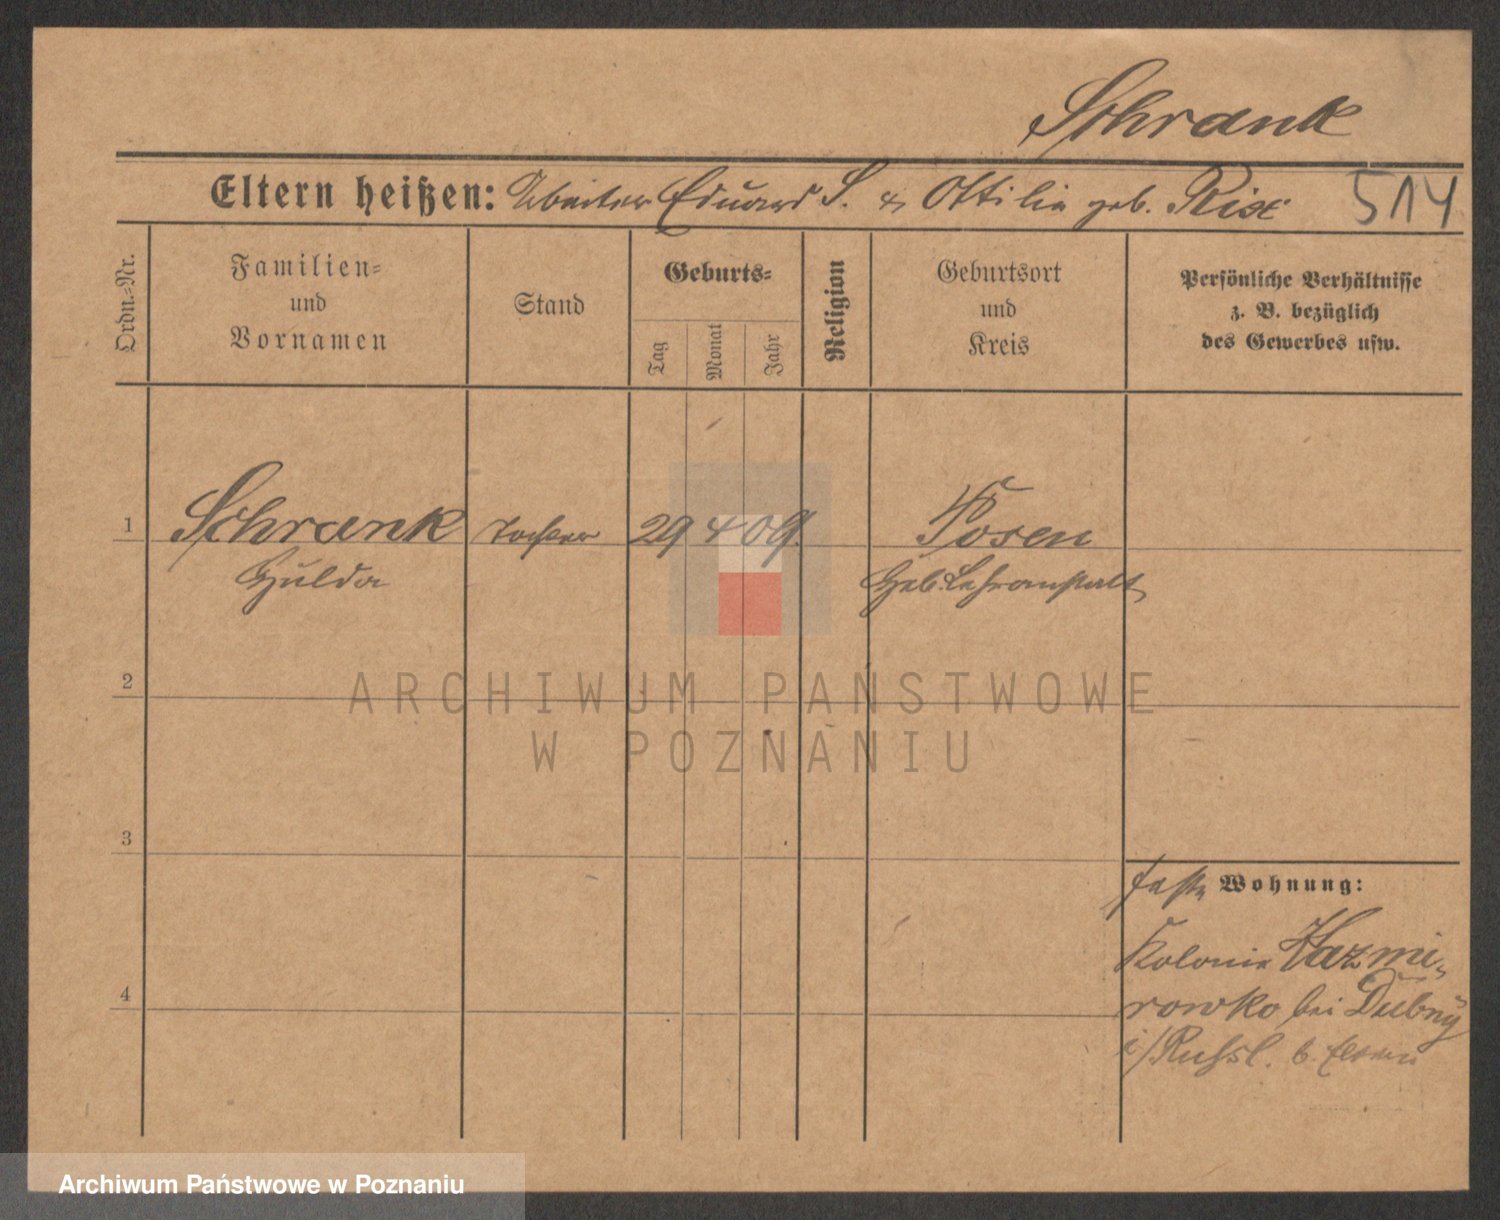 Schrank
Eltern heißen: Arbeiter Eduard S. & Ottilie geb. Rist 514
Ordn.-Nr.
Familien-
und
Vornamen
Stand
Geburts-
Tag
Monat
Jahr
Religion
Geburtsort
und
Kreis
Persönliche Verhältnisse
z. B. bezüglich
des Gewerbes usw.
1 Schrank Tochter 29 4 09. Posen
Hulda Heb. Lehranstalt
2
3
4
feste Wohnung:
Kolonie Kazmi-
rowko bei Dubny
i/Russl. b. Eltern
ARCHIWUM PAŃSTWOWE
W POZNANIU
Archiwum Państwowe w Poznaniu